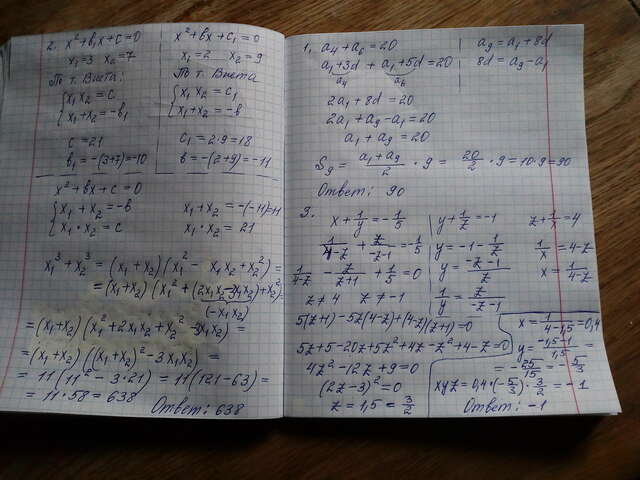 2. x² + b₁x + c = 0
x₁ = 3 x₂ = 7
По т. Виета:
{ x₁ x₂ = c
x₁ + x₂ = -b₁
c = 21
b₁ = -(3+7) = -10
x² + bx + c₁ = 0
x₁ = 2 x₂ = 9
По т. Виета
{ x₁ x₂ = c₁
x₁ + x₂ = -b
c₁ = 2·9 = 18
b = -(2+9) = -11
x² + bx + c = 0
{ x₁ + x₂ = -b
x₁ · x₂ = c
x₁ + x₂ = -(-11) = 11
x₁ · x₂ = 21
x₁³ + x₂³ = (x₁ + x₂)(x₁² - x₁x₂ + x₂²) =
= (x₁ + x₂)(x₁² + (2x₁x₂ - 3x₁x₂) + x₂²) =
(-x₁x₂)
= (x₁ + x₂)(x₁² + 2x₁x₂ + x₂² - 3x₁x₂) =
= (x₁ + x₂)((x₁ + x₂)² - 3x₁x₂) =
= 11(11² - 3·21) = 11(121 - 63) =
= 11·58 = 638
Ответ: 638
1. a₄ + a₆ = 20
a₁ + 3d + a₁ + 5d = 20
a₄ a₆
a₉ = a₁ + 8d
8d = a₉ - a₁
2a₁ + 8d = 20
2a₁ + a₉ - a₁ = 20
a₁ + a₉ = 20
S₉ = (a₁ + a₉)/2 · 9 = 20/2 · 9 = 10·9 = 90
Ответ: 90
3.
x + 1/y = -1/5
1/(4-z) + z/(-z-1) = -1/5
1/(4-z) - z/(z+1) + 1/5 = 0
z ≠ 4 z ≠ -1
y + 1/z = -1
y = -1 - 1/z
y = (-z-1)/z
1/y = z/(-z-1)
z + 1/x = 4
1/x = 4-z
x = 1/(4-z)
5(z+1) - 5z(4-z) + (4-z)(z+1) = 0
5z + 5 - 20z + 5z² + 4z - z² + 4 - z = 0
4z² - 12z + 9 = 0
(2z-3)² = 0
z = 1,5 = 3/2
x = 1/(4-1,5) = 0,4
y = (-1,5-1)/1,5 =
= -25/15 = -5/3
xyz = 0,4·(-5/3)·3/2 = -1
Ответ: -1